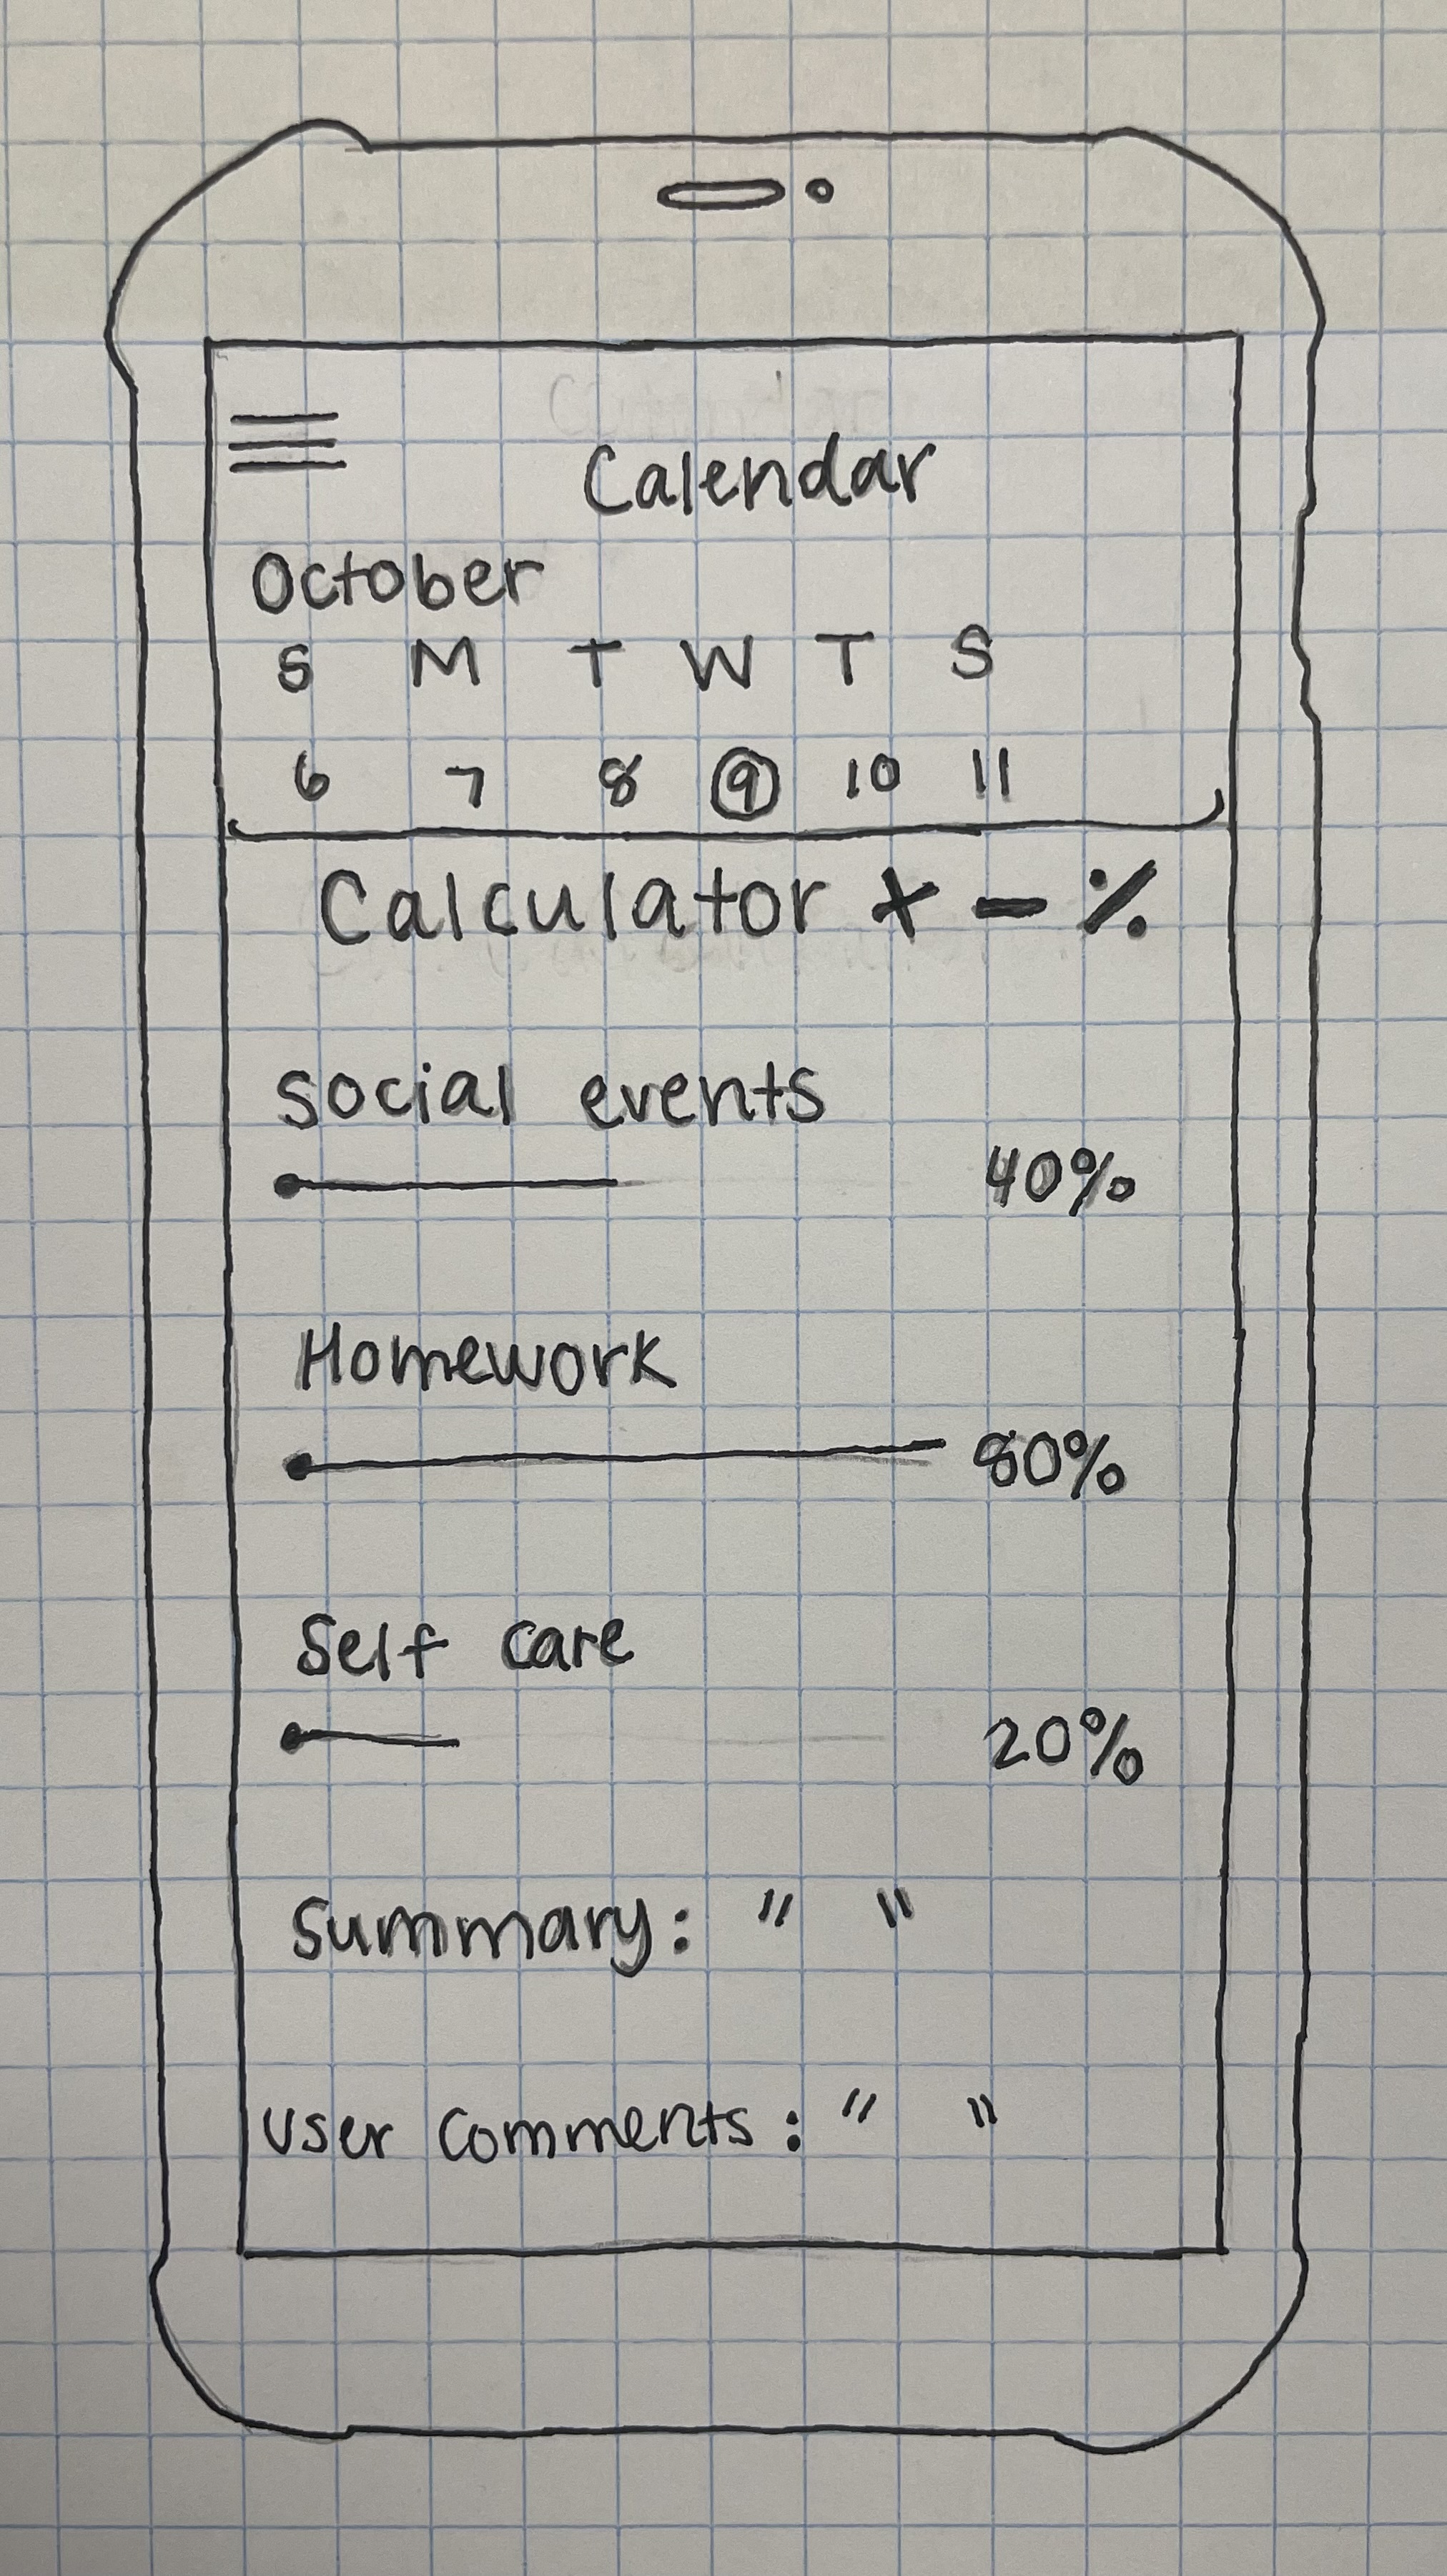 Calendar
October
S M T W T S
6 7 8 9 10 11
Calculator + - %
social events
40%
Homework
80%
Self care
20%
Summary: " "
User comments: " "